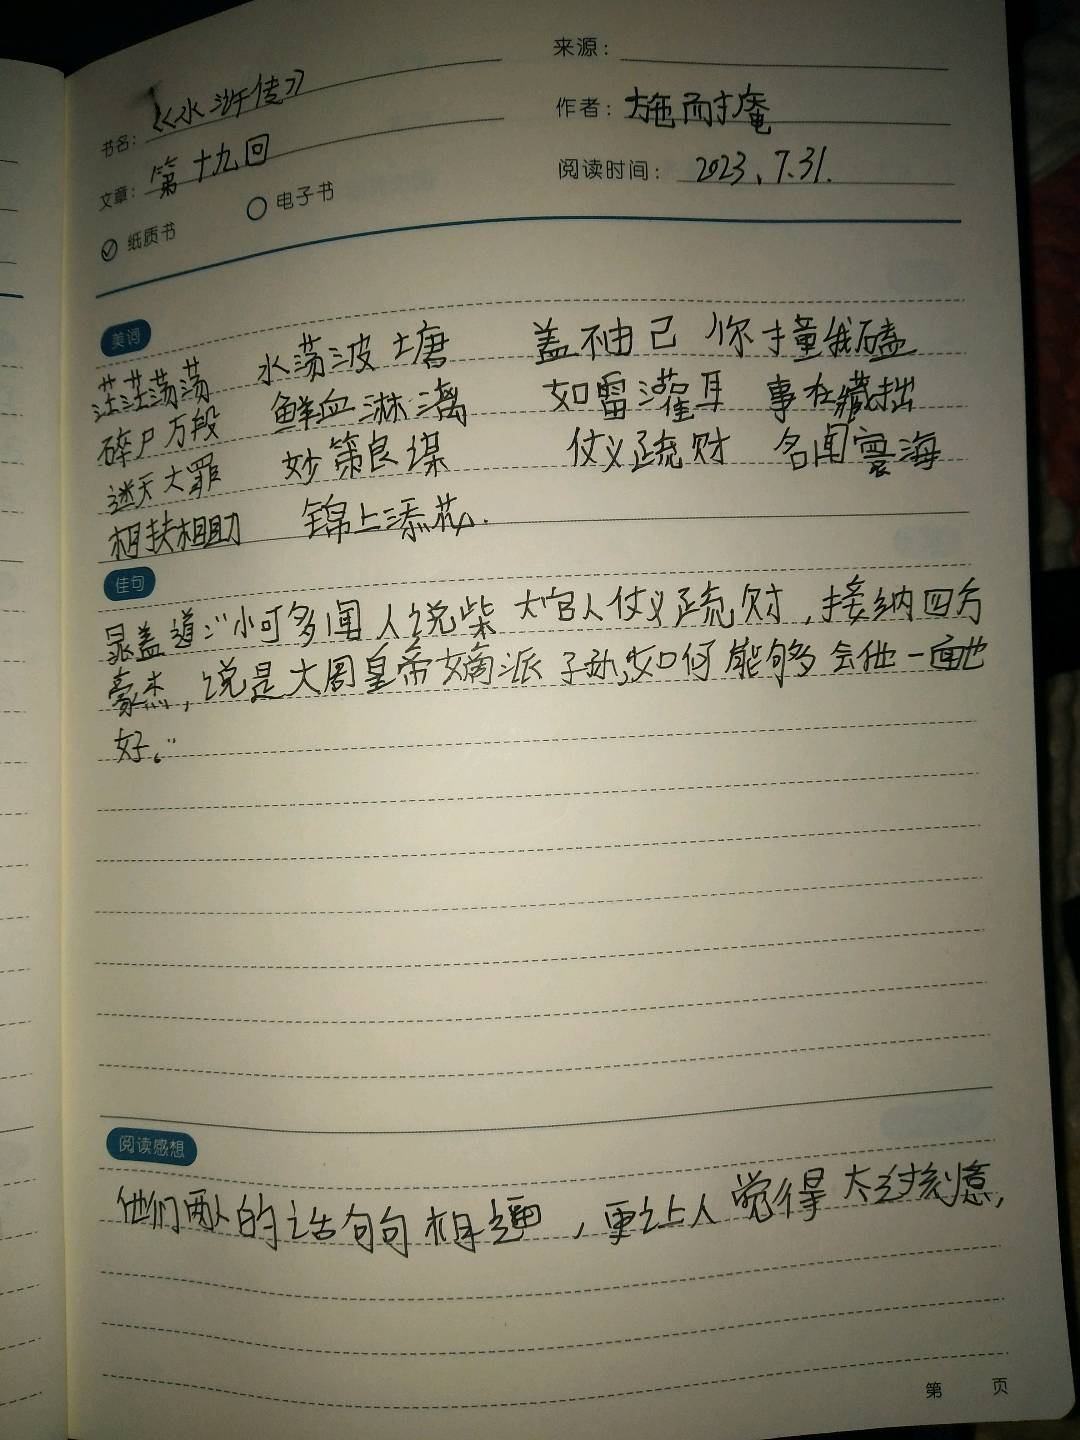 来源：
书名：《水浒传》
作者：施耐庵
文章：第十九回
阅读时间：2023、7.31.
纸质书 电子书
美词
茫茫荡荡 水荡波塘 盖不由己 你撞我磕
碎尸万段 鲜血淋漓 如雷灌耳 事在藏拙
迷天大罪 妙策良谋 仗义疏财 名闻寰海
相扶相助 锦上添花.
佳句
晁盖道:"小可多闻人说柴大官人仗义疏财，接纳四方
豪杰，说是大周皇帝嫡派子孙,如何能够会他一面也
好。"
阅读感想
他们两人的话句句相逼，更让人觉得太过刻意,
第 页